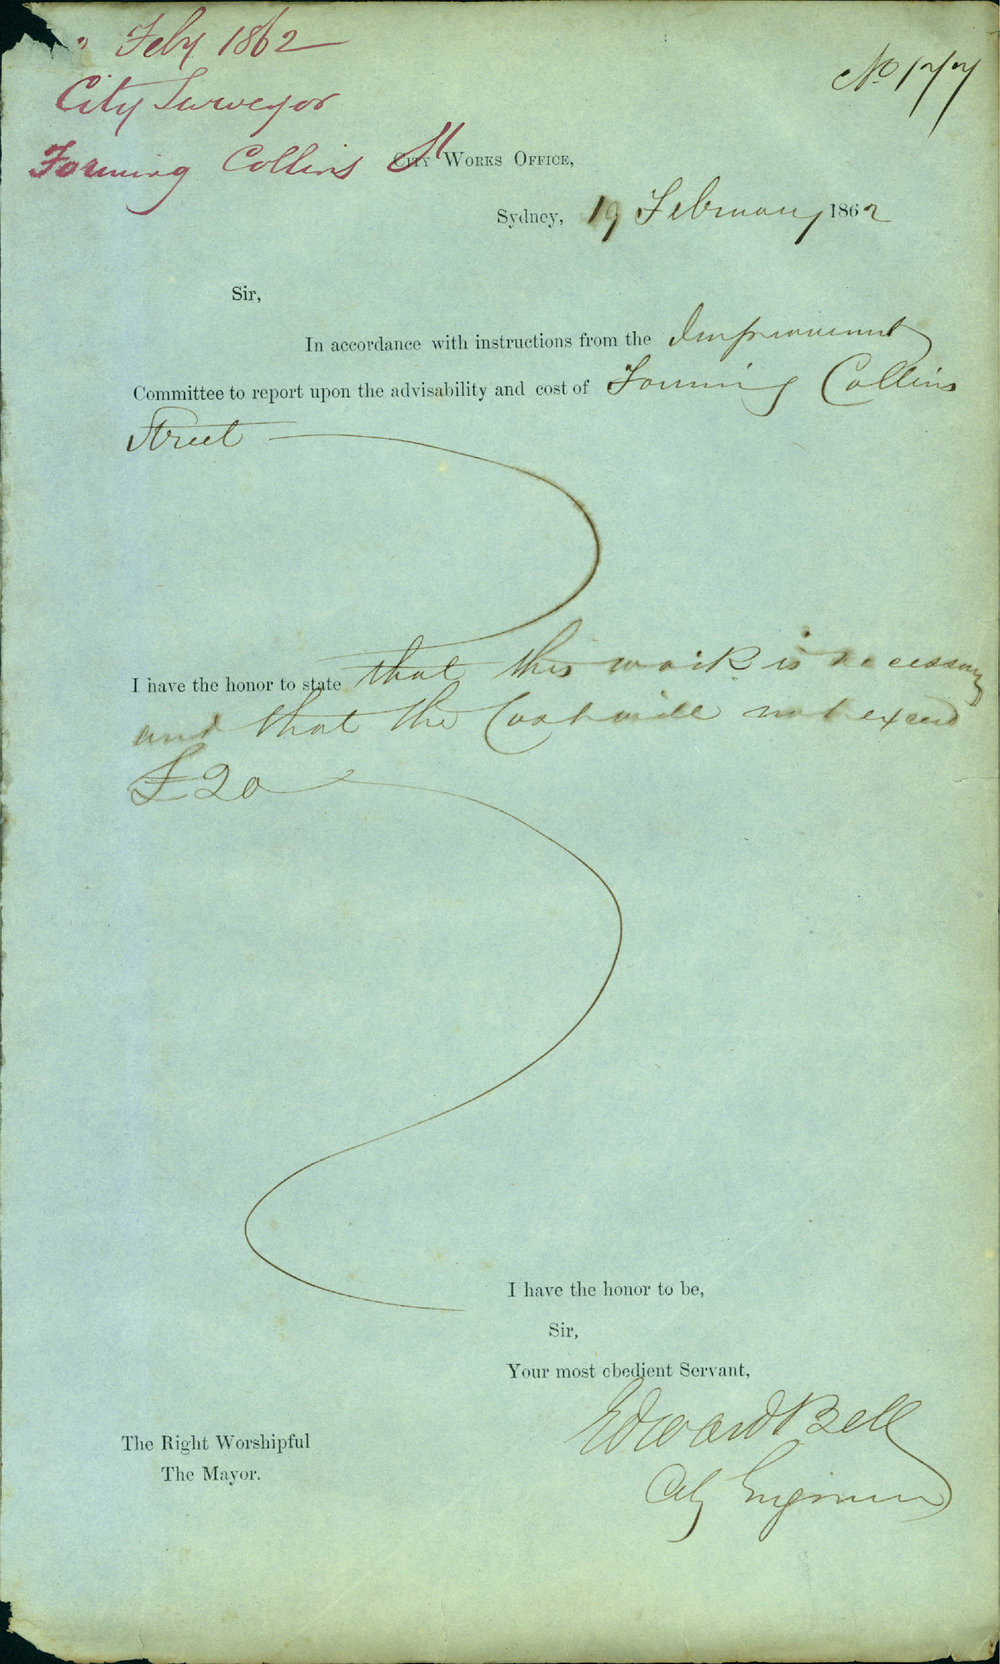 Feby 1862
No 177
City Surveyor
Forming Collins St
City Works Office,
Sydney, 19 February 1862
Sir,
In accordance with instructions from the Improvement
Committee to report upon the advisability and cost of Forming Collins
Street
I have the honor to state that this work is necessary
and that the Cost will not exceed
£20
I have the honor to be,
Sir,
Your most obedient Servant,
Edward Bell
City Engineer
The Right Worshipful
The Mayor.